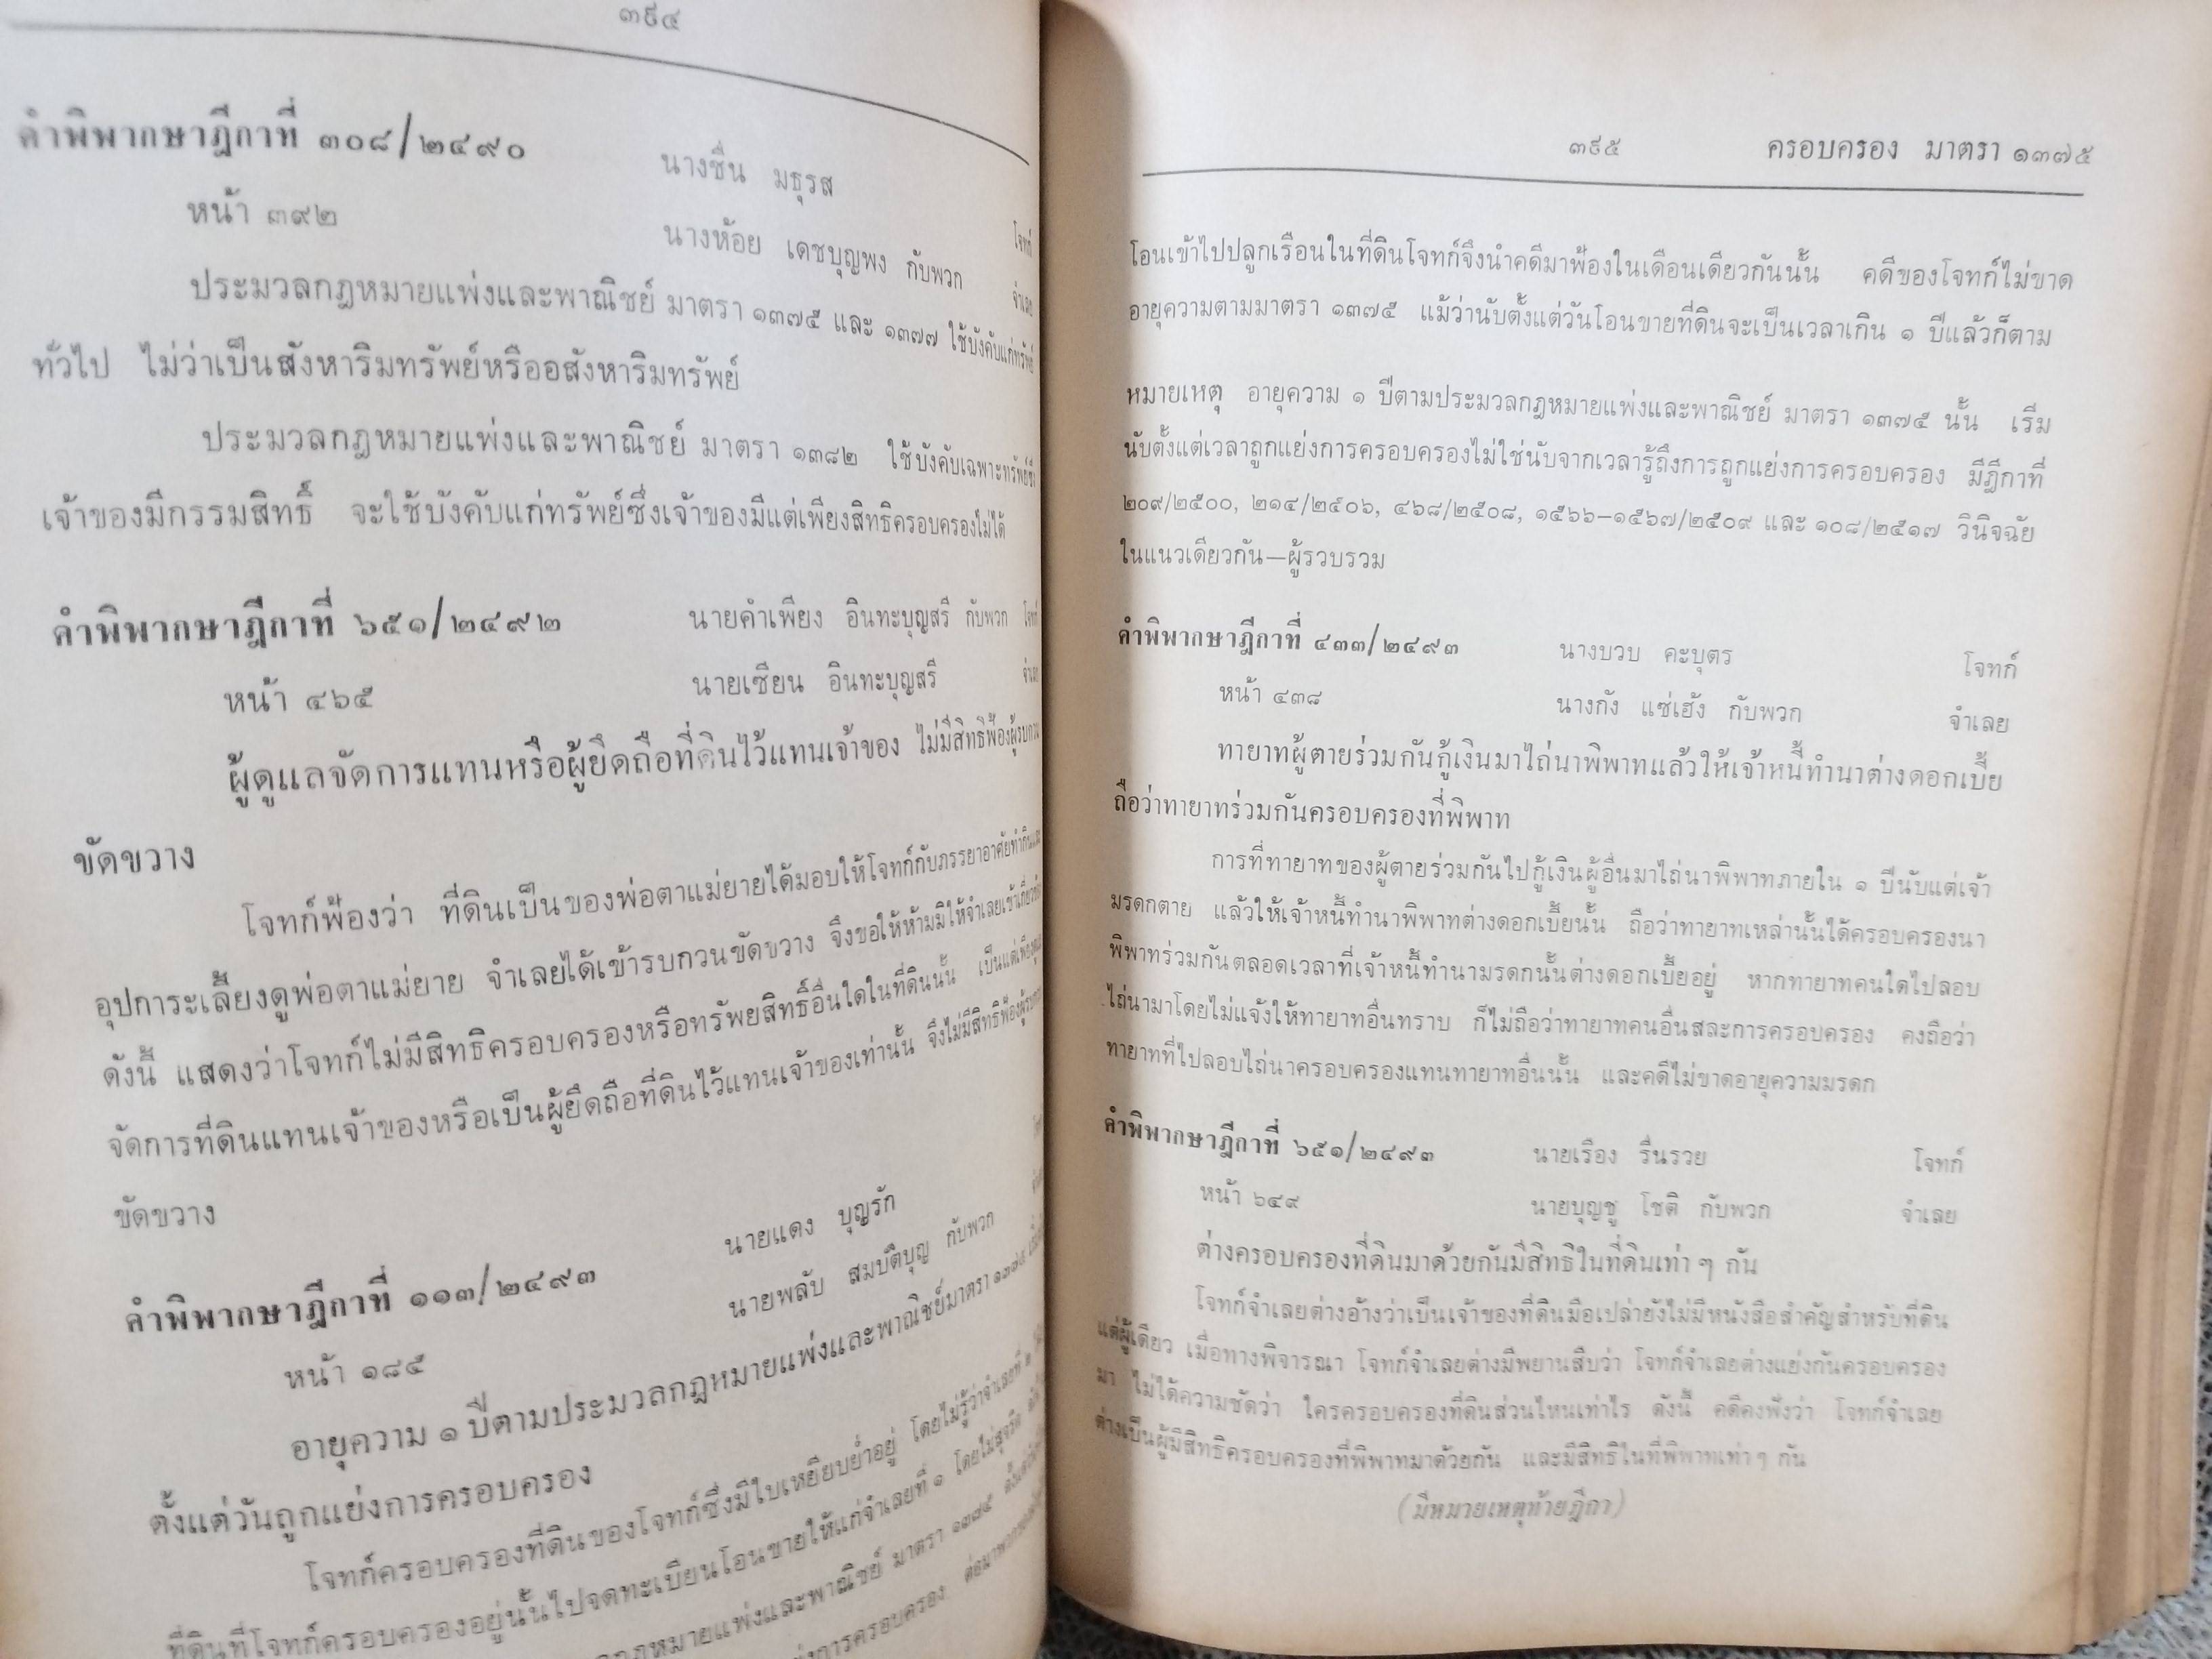 ๓๙๔
คำพิพากษาฎีกาที่ ๓๐๘/๒๔๙๐ นางชื่น มธุรส โจทก์
หน้า ๓๙๒ นางห้อย เดชบุญพง กับพวก จำเลย
ประมวลกฎหมายแพ่งและพาณิชย์ มาตรา ๑๓๗๕ และ ๑๓๗๗ ใช้บังคับแก่ทรัพย์
ทั่วไป ไม่ว่าเป็นสังหาริมทรัพย์หรืออสังหาริมทรัพย์
ประมวลกฎหมายแพ่งและพาณิชย์ มาตรา ๑๓๘๒ ใช้บังคับเฉพาะทรัพย์ซึ่ง
เจ้าของมีกรรมสิทธิ์ จะใช้บังคับแก่ทรัพย์ซึ่งเจ้าของมีแต่เพียงสิทธิครอบครองไม่ได้
คำพิพากษาฎีกาที่ ๖๕๑/๒๔๙๒ นายคำเพียง อินทะบุญสรี กับพวก โจทก์
หน้า ๔๖๕ นายเซียน อินทะบุญสรี
ผู้ดูแลจัดการแทนหรือผู้ยึดถือที่ดินไว้แทนเจ้าของ ไม่มีสิทธิฟ้องผู้รบกวน
ขัดขวาง
โจทก์ฟ้องว่า ที่ดินเป็นของพ่อตาแม่ยายได้มอบให้โจทก์กับภรรยาอาศัยทำกิน
อุปการะเลี้ยงดูพ่อตาแม่ยาย จำเลยได้เข้ารบกวนขัดขวาง จึงขอให้ห้ามมิให้จำเลยเข้าเกี่ยวข้อง
ดังนี้ แสดงว่าโจทก์ไม่มีสิทธิครอบครองหรือทรัพยสิทธิ์อื่นใดในที่ดินนั้น เป็นแต่เพียง
จัดการที่ดินแทนเจ้าของหรือเป็นผู้ยึดถือที่ดินไว้แทนเจ้าของเท่านั้น จึงไม่มีสิทธิฟ้องผู้รบกวน
ขัดขวาง
คำพิพากษาฎีกาที่ ๑๑๓/๒๔๙๓ นายแดง บุญรัก
หน้า ๑๘๕ นายพลับ สมบัติบุญ กับพวก
อายุความ ๑ ปีตามประมวลกฎหมายแพ่งและพาณิชย์มาตรา ๑๓๗๕
ตั้งแต่วันถูกแย่งการครอบครอง
โจทก์ครอบครองที่ดินของโจทก์ซึ่งมีใบเหยียบย่ำอยู่ โดยไม่รู้ว่าจำเลยที่ ๒
ที่ดินที่โจทก์ครอบครองอยู่นั้นไปจดทะเบียนโอนขายให้แก่จำเลยที่ ๑ โดยไม่สุจริต
กฎหมายแพ่งและพาณิชย์ มาตรา ๑๓๗๕
การครอบครอง
๓๙๕ ครอบครอง มาตรา ๑๓๗๕
โอนเข้าไปปลูกเรือนในที่ดินโจทก์จึงนำคดีมาฟ้องในเดือนเดียวกันนั้น คดีของโจทก์ไม่ขาด
อายุความตามมาตรา ๑๓๗๕ แม้ว่านับตั้งแต่วันโอนขายที่ดินจะเป็นเวลาเกิน ๑ ปีแล้วก็ตาม
หมายเหตุ อายุความ ๑ ปีตามประมวลกฎหมายแพ่งและพาณิชย์ มาตรา ๑๓๗๕ นั้น เริ่ม
นับตั้งแต่เวลาถูกแย่งการครอบครองไม่ใช่นับจากเวลารู้ถึงการถูกแย่งการครอบครอง มีฎีกาที่
๒๐๙/๒๕๐๐, ๒๑๔/๒๕๐๖, ๔๖๘/๒๕๐๘, ๑๕๖๖–๑๕๖๗/๒๕๐๙ และ ๑๐๘/๒๕๑๗ วินิจฉัย
ในแนวเดียวกัน—ผู้รวบรวม
คำพิพากษาฎีกาที่ ๔๓๓/๒๔๙๓ นางบวบ คะบุตร โจทก์
หน้า ๔๓๘ นางกัง แซ่เฮ้ง กับพวก จำเลย
ทายาทผู้ตายร่วมกันกู้เงินมาไถ่นาพิพาทแล้วให้เจ้าหนี้ทำนาต่างดอกเบี้ย
ถือว่าทายาทร่วมกันครอบครองที่พิพาท
การที่ทายาทของผู้ตายร่วมกันไปกู้เงินผู้อื่นมาไถ่นาพิพาทภายใน ๑ ปีนับแต่เจ้า
มรดกตาย แล้วให้เจ้าหนี้ทำนาพิพาทต่างดอกเบี้ยนั้น ถือว่าทายาทเหล่านั้นได้ครอบครองนา
พิพาทร่วมกันตลอดเวลาที่เจ้าหนี้ทำนามรดกนั้นต่างดอกเบี้ยอยู่ หากทายาทคนใดไปลอบ
ไถ่นามาโดยไม่แจ้งให้ทายาทอื่นทราบ ก็ไม่ถือว่าทายาทคนอื่นสละการครอบครอง คงถือว่า
ทายาทที่ไปลอบไถ่นาครอบครองแทนทายาทอื่นนั้น และคดีไม่ขาดอายุความมรดก
คำพิพากษาฎีกาที่ ๖๕๑/๒๔๙๓ นายเรือง รื่นรวย โจทก์
หน้า ๖๔๙ นายบุญชู โชติ กับพวก จำเลย
ต่างครอบครองที่ดินมาด้วยกันมีสิทธิในที่ดินเท่า ๆ กัน
โจทก์จำเลยต่างอ้างว่าเป็นเจ้าของที่ดินมือเปล่ายังไม่มีหนังสือสำคัญสำหรับที่ดิน
แต่ผู้เดียว เมื่อทางพิจารณา โจทก์จำเลยต่างมีพยานสืบว่า โจทก์จำเลยต่างแย่งกันครอบครอง
มา ไม่ได้ความชัดว่า ใครครอบครองที่ดินส่วนไหนเท่าไร ดังนี้ คดีคงฟังว่า โจทก์จำเลย
ต่างเป็นผู้มีสิทธิครอบครองที่พิพาทมาด้วยกัน และมีสิทธิในที่พิพาทเท่า ๆ กัน
(มีหมายเหตุท้ายฎีกา)